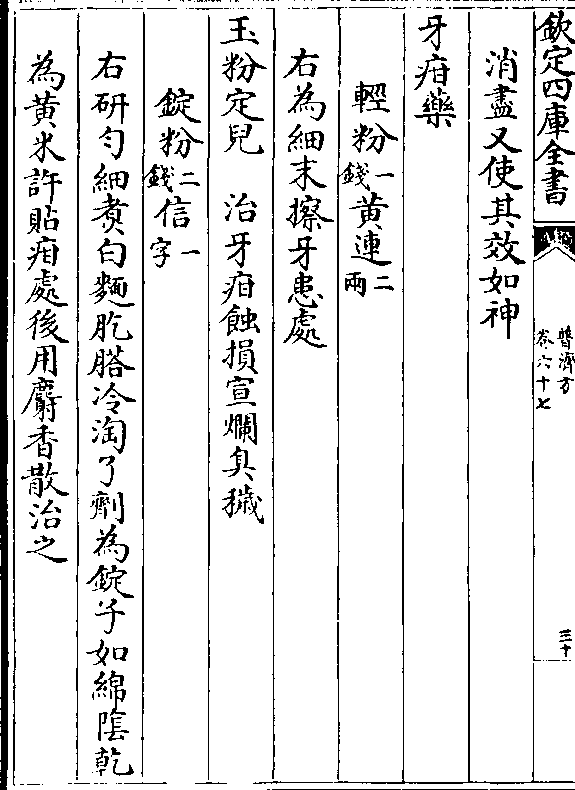 欽定四庫全書
普濟方
卷六十七
三十
消盡又使其效如神
牙疳藥
輕粉一錢黃連二兩
右為細末擦牙患處
玉粉定兒　治牙疳蝕損宣爛臭穢
錠粉二錢信一字
右研勻細煮白麵肐𦞂冷淘了劑為錠子如綿陰乾
為黃米許貼疳處後用麝香散治之